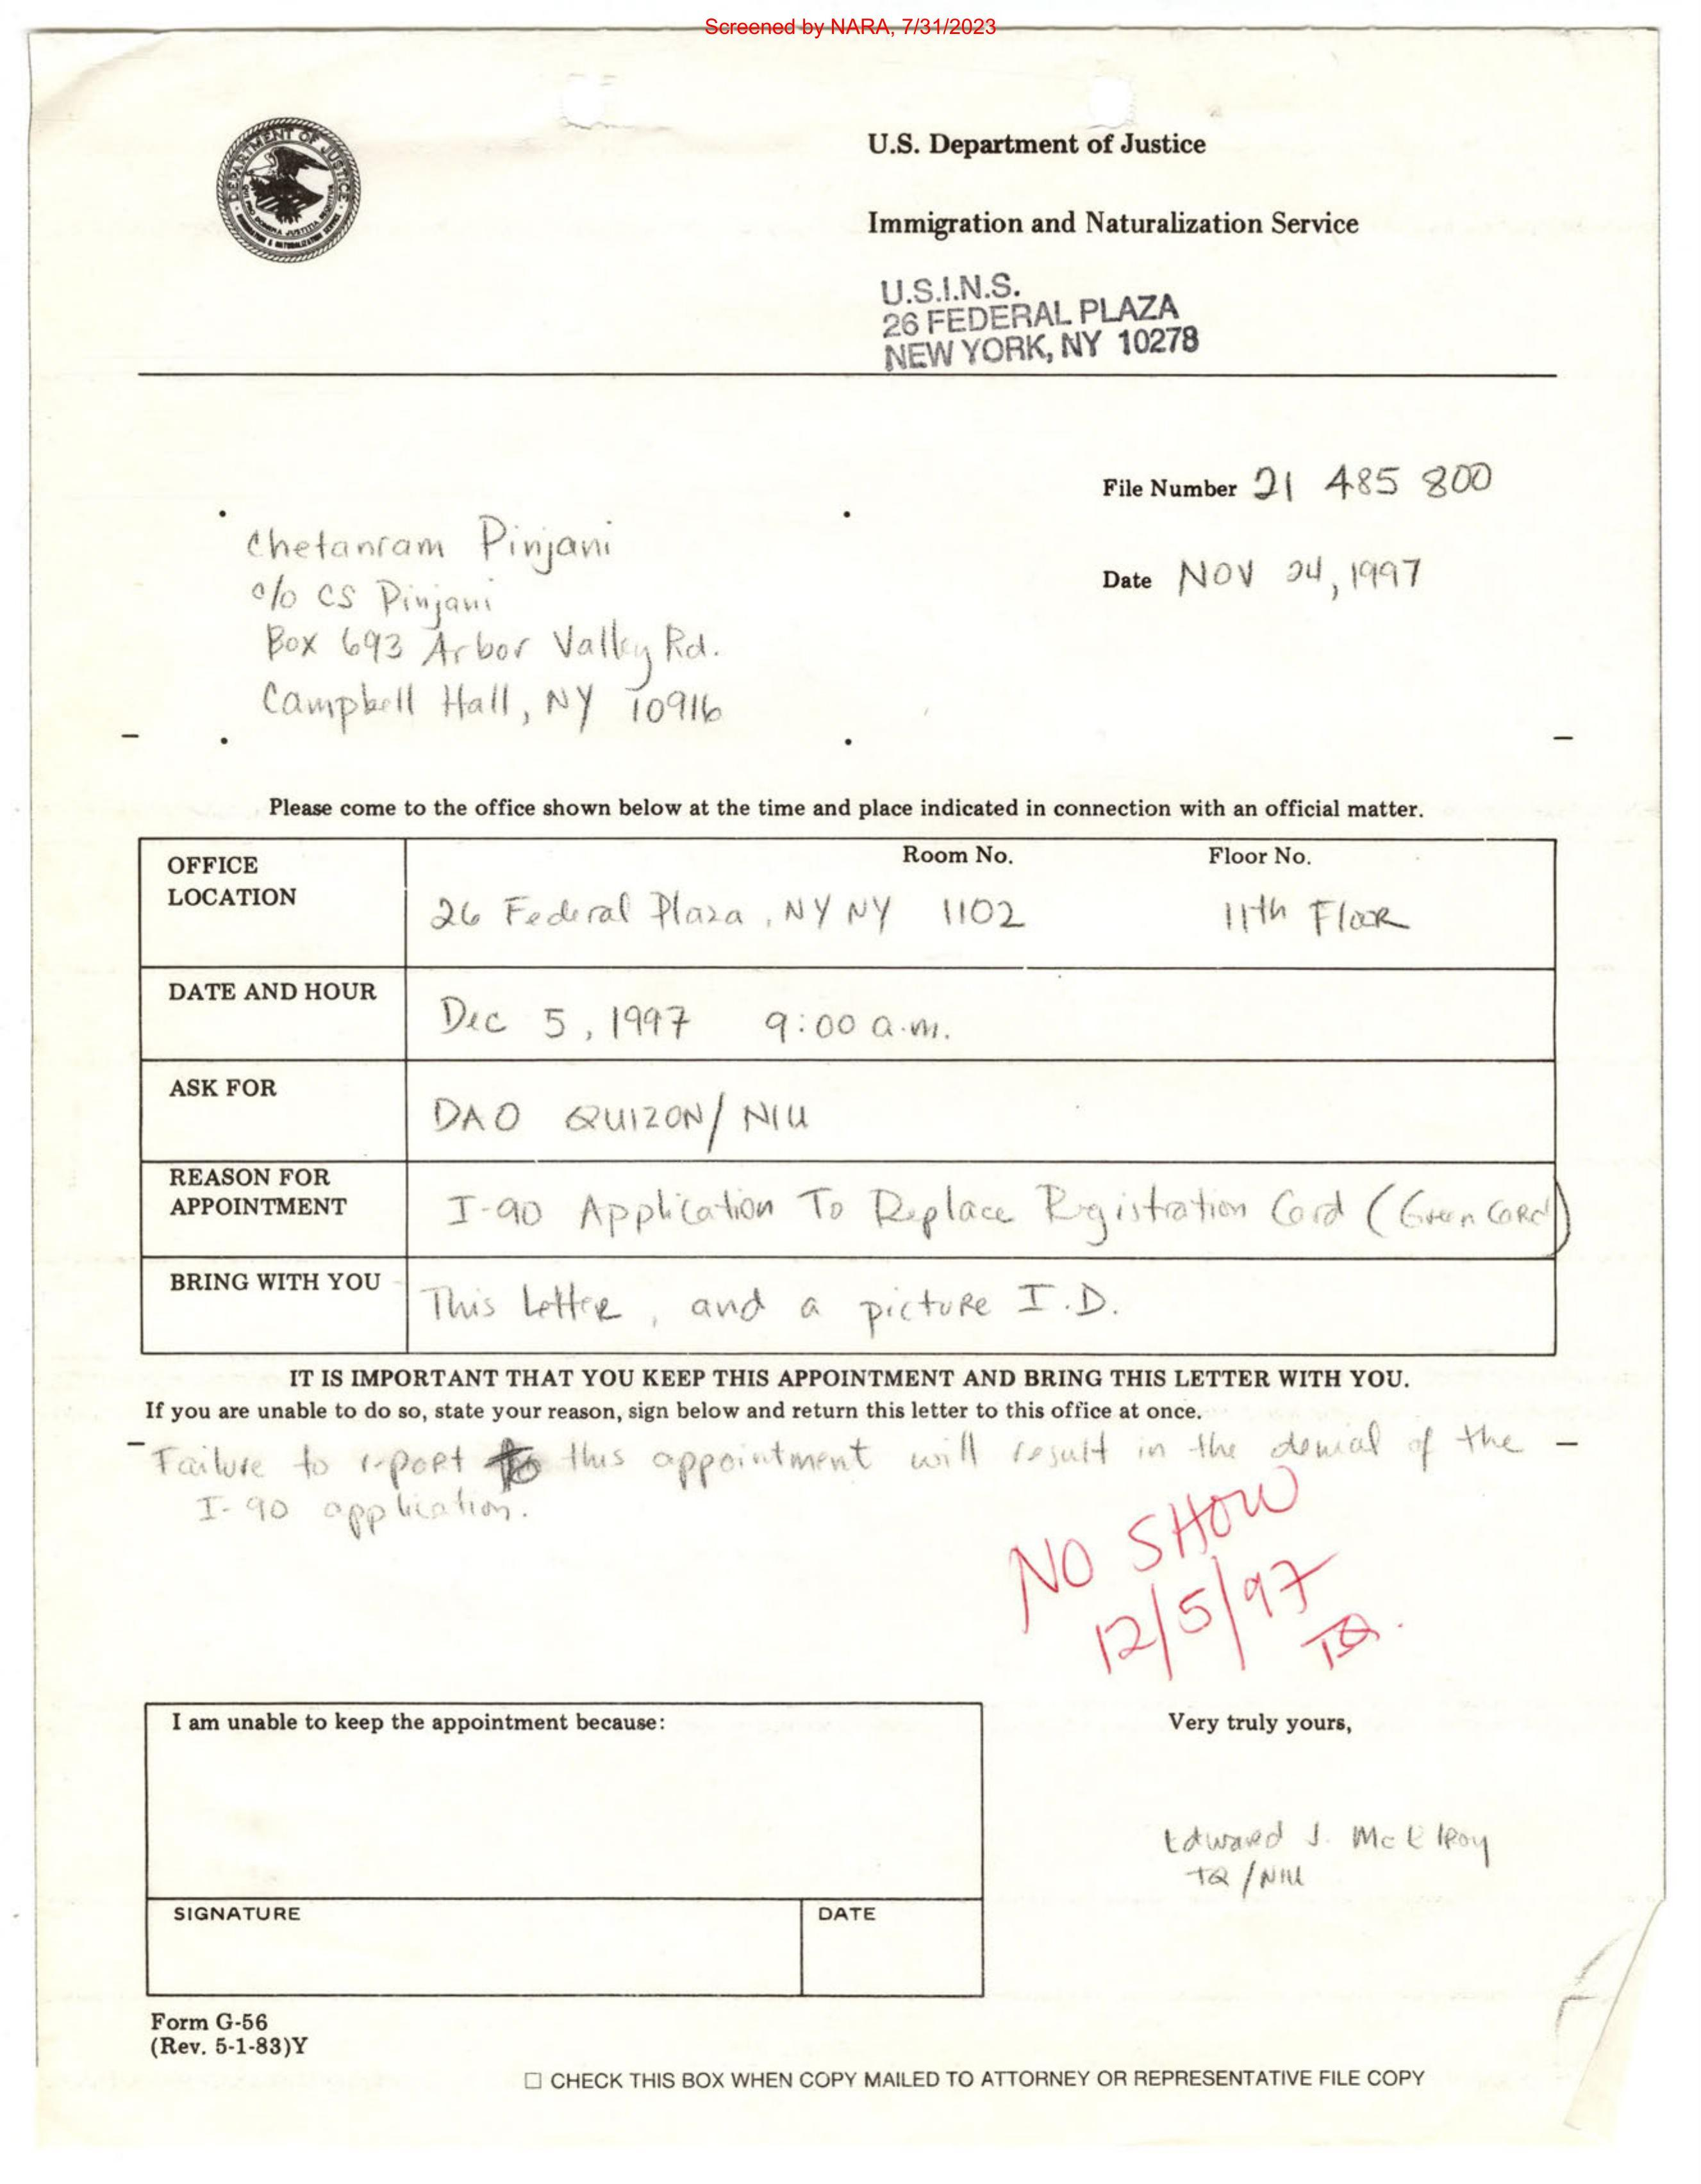 Screened by NARA, 7/31/2023
DEPARTMENT OF JUSTICE
U.S. Department of Justice
Immigration and Naturalization Service
U.S.I.N.S.
26 FEDERAL PLAZA
NEW YORK, NY 10278
File Number 21 485 800
Chetanram Pinjani
c/o CS Pinjani
Box 693 Arbor Valley Rd.
Campbell Hall, NY 10916
Date NOV 24, 1997
Please come to the office shown below at the time and place indicated in connection with an official matter.
OFFICE LOCATION
Room No.
Floor No.
26 Federal Plaza, NY NY 1102 11th Floor
DATE AND HOUR
Dec 5, 1997 9:00 a.m.
ASK FOR
DAO QUIZON/ NIU
REASON FOR APPOINTMENT
I-90 Application To Replace Registration Card (Green Card)
BRING WITH YOU
This Letter, and a picture I.D.
IT IS IMPORTANT THAT YOU KEEP THIS APPOINTMENT AND BRING THIS LETTER WITH YOU.
If you are unable to do so, state your reason, sign below and return this letter to this office at once.
Failure to report to this appointment will result in the denial of the
I-90 application.
NO SHOW
12/5/97
TQ.
I am unable to keep the appointment because:
Very truly yours,
Edward J. McElroy
TQ/NIU
SIGNATURE
DATE
Form G-56
(Rev. 5-1-83)Y
☐ CHECK THIS BOX WHEN COPY MAILED TO ATTORNEY OR REPRESENTATIVE FILE COPY